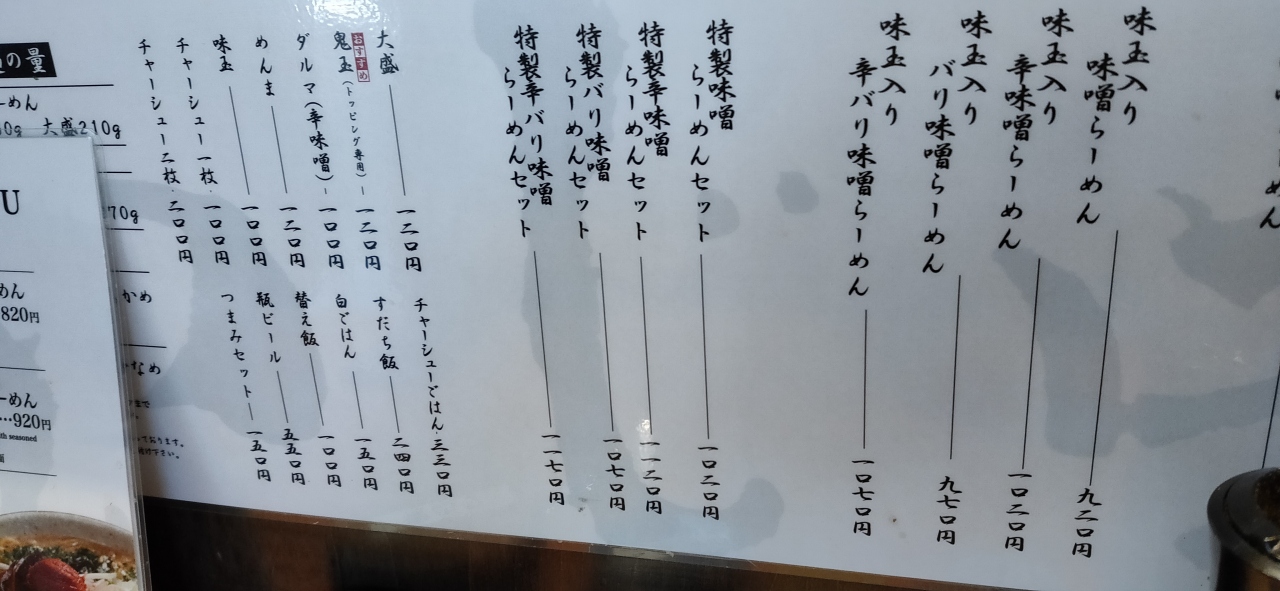 味玉入り
味噌らーめん
九二〇円
味玉入り
辛味噌らーめん
一〇二〇円
味玉入り
バリ味噌らーめん
九七〇円
味玉入り
辛バリ味噌らーめん
一〇七〇円
特製味噌
らーめんセット
一〇二〇円
特製辛味噌
らーめんセット
一一二〇円
特製バリ味噌
らーめんセット
一〇七〇円
特製辛バリ味噌
らーめんセット
一一七〇円
大盛 一二〇円
おすすめ
鬼玉(トッピング専用) 一二〇円
ダルマ(辛味噌) 一〇〇円
めんま 一二〇円
味玉 一〇〇円
チャーシュー一枚 一〇〇円
チャーシュー二枚 二〇〇円
チャーシューごはん 三三〇円
すだち飯 二四〇円
白ごはん 一五〇円
替え飯 一〇〇円
瓶ビール 五五〇円
つまみセット 一五〇円
の量
ーめん
0g 大盛210g
70g
かめ
なめ
U
めん
820円
ーめん
…920円
th seasoned